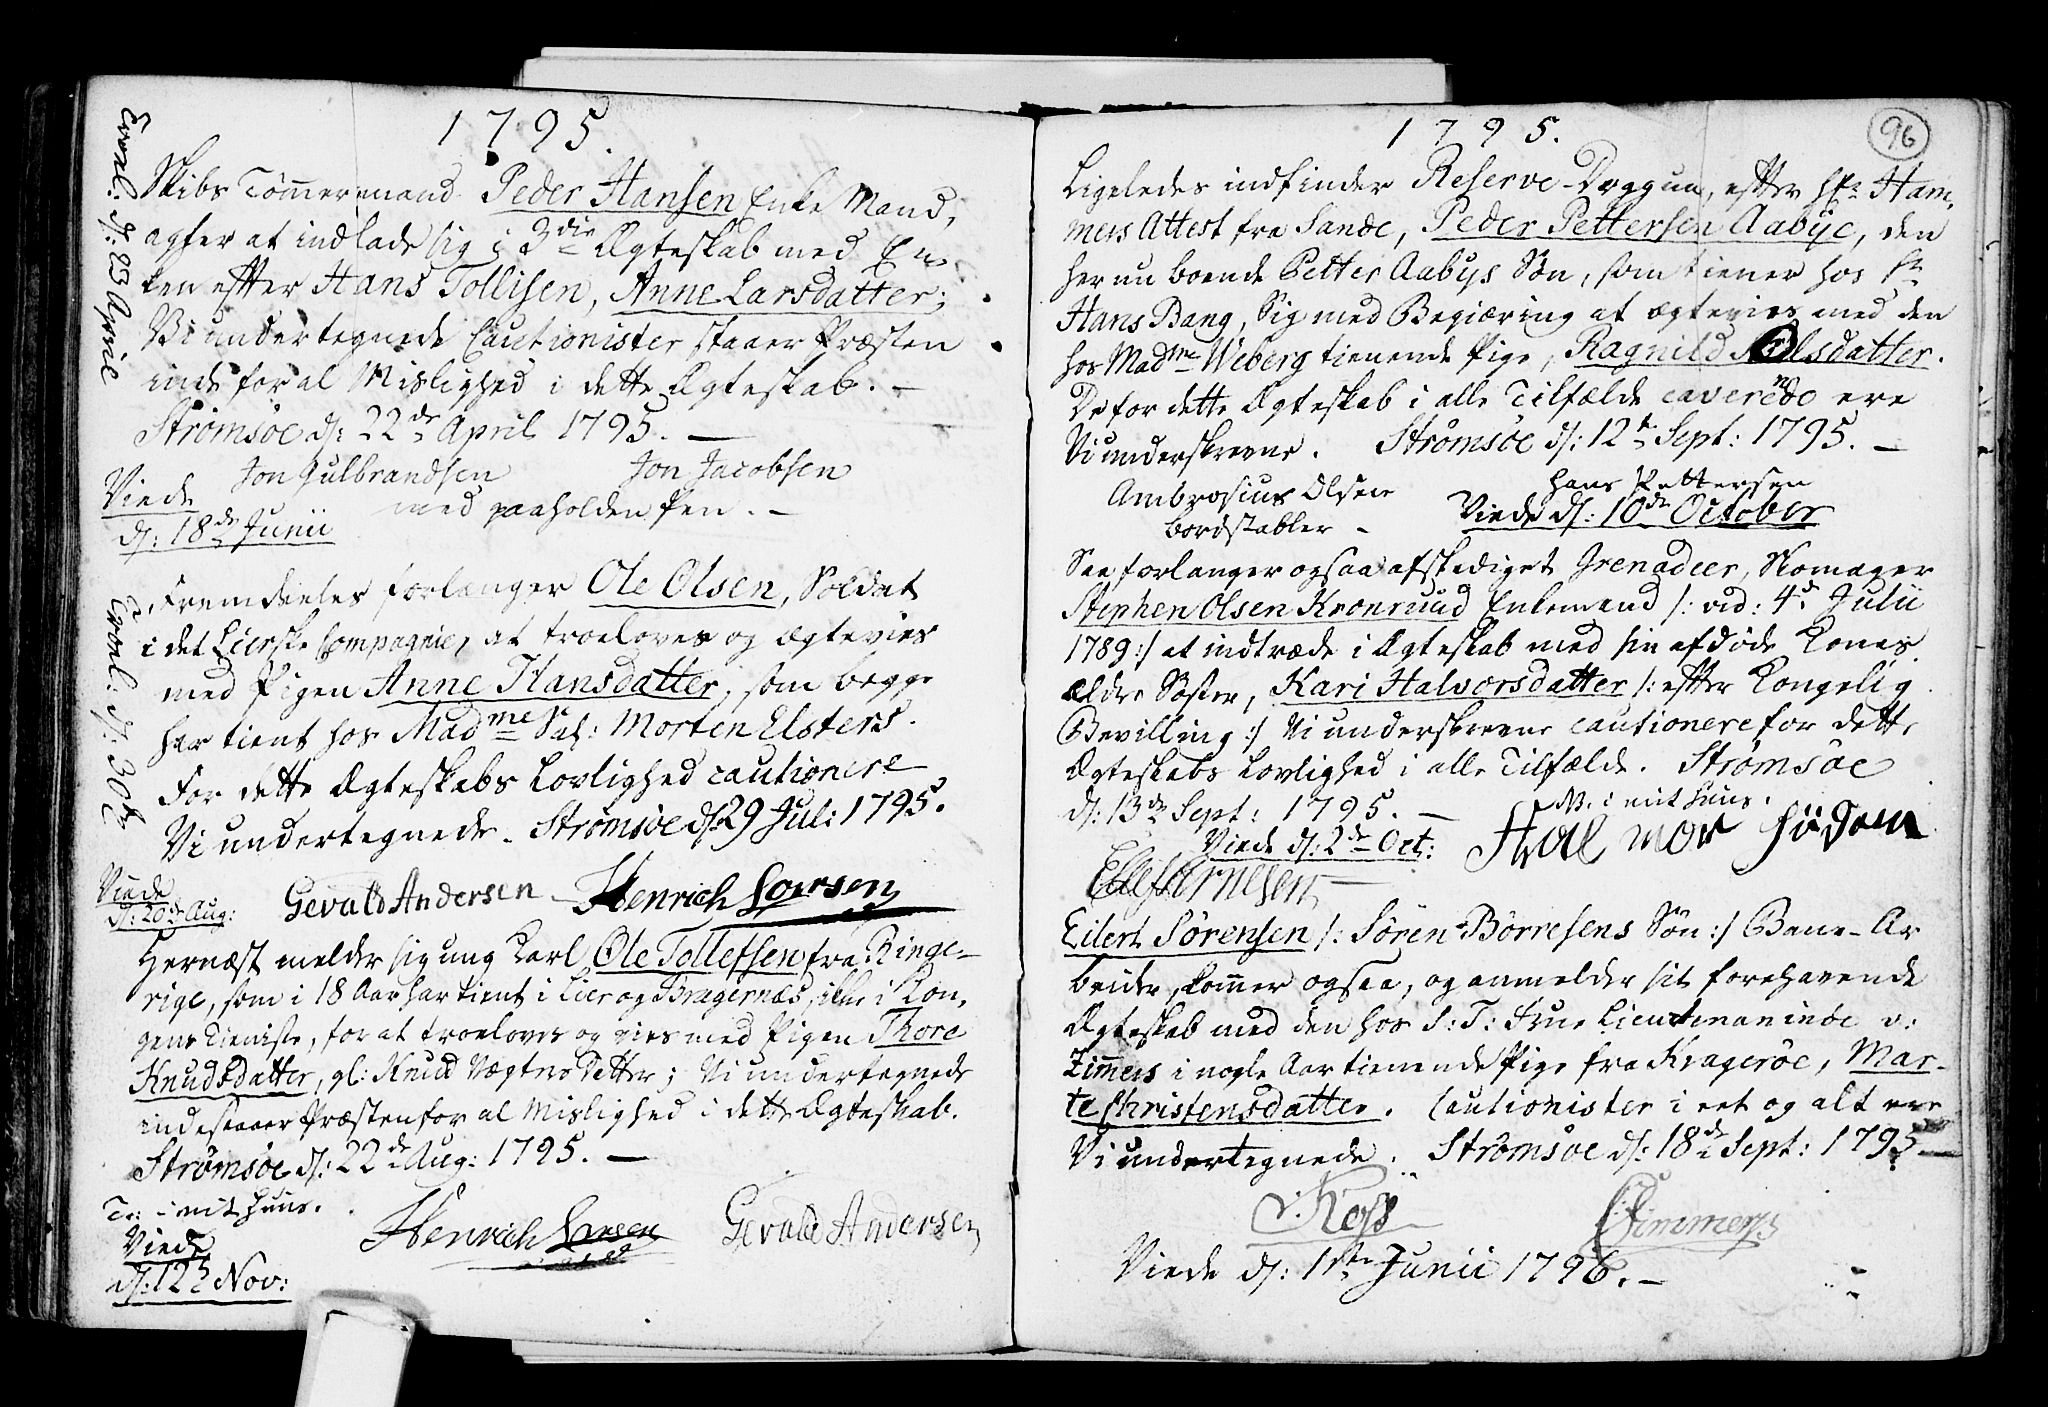 1795.
Skibs Tömmermand Peder Hansen Enke Mand,
agter at indlade sig i 3die Ægteskab med En-
ken efter Hans Tollisen, Anne Larsdatter;
Vi undertegnede Cautionister staaer Præsten
inde for al Mislighed i dette Ægteskab. —
Strømsøe d: 22de April 1795. —
Jon Gulbrandsen Jon Jacobsen
med paaholden Pen. —
Viede
d: 18de Junii
Trovl: d: 23 April
Fremdeeles forlanger Ole Olsen, Soldat
i det Lierske Compagnie, at troeloves og ægtevies
med Pigen Anne Hansdatter, som begge
har tient hos Madme Sal: Morten Elsters.
For dette Ægteskabs Lovlighed cautionere
Vi undertegnede. Strømsøe d: 29 Jul: 1795.
Trovl: d: 30te
Viede
d: 20de Aug:
Gevald Andersen Henrich Larsen
Hernæst melder sig ung Karl Ole Tollefsen fra Ringe-
rige, som i 18 Aar har tient i Lier og Bragernæs, ikke i Kon-
gens Tieniste, for at troeloves og vies med Pigen Thore
Knudsdatter, gl: Knud Vægters Datter; Vi undertegnede
indestaaer Præsten for al Mislighed i dette Ægteskab.
Strømsøe d: 22de Aug: 1795. —
Tr: i mit Huus.
Viede
d: 12te Nov:
Henrich Larsen Gevald Andersen
96
1795.
Ligeledes indfinder Reserve-Dragun, efter Hr: Ham-
mers Attest fra Sande, Peder Pettersen Aabye, den
her nu boende Petter Aabys Søn, som tiener hos Sr
Hans Bang, sig med Begiæring at ægtevies med den
hos Madme Weberg tienende Pige, Ragnild Olsdatter.
De for dette Ægteskab i alle Tilfælde caverende ere
Vi underskrevne. Strømsøe d: 12te Sept: 1795. —
Ambrosius Olsen Hans Pettersen
bordstabler — Viede d: 10de October
Saa forlanger ogsaa afskediget Grenadeer, Skomager
Stephen Olsen Kronruud Enkemand /: vid: 4de Julii
1789 :/ at indtræde i Ægteskab med sin afdøde Kones
ældre Søster, Kari Halvorsdatter /: efter Kongelig
Bevilling :/ Vi underskrevne cautionere for dette
Ægteskabs Lovlighed i alle Tilfælde. Strømsøe
d: 13de Sept: 1795. — i mit Huus.
Viede d: 2de Oct:
Eilert Sörensen /: Sören Börresens Søn :/ Bane-Ar
beider, kommer ogsaa, og anmelder sit forehavende
Ægteskab med den hos S: T: Frue Lieutenaninde v:
Zimmers i nogle Aar tienende Pige fra Kragerøe, Mar-
te Christensdatter. Cautionister i eet og alt ere
Vi undertegnede. Strømsøe d: 18de Sept: 1795 —
Viede d: 1ste Junii 1796. —